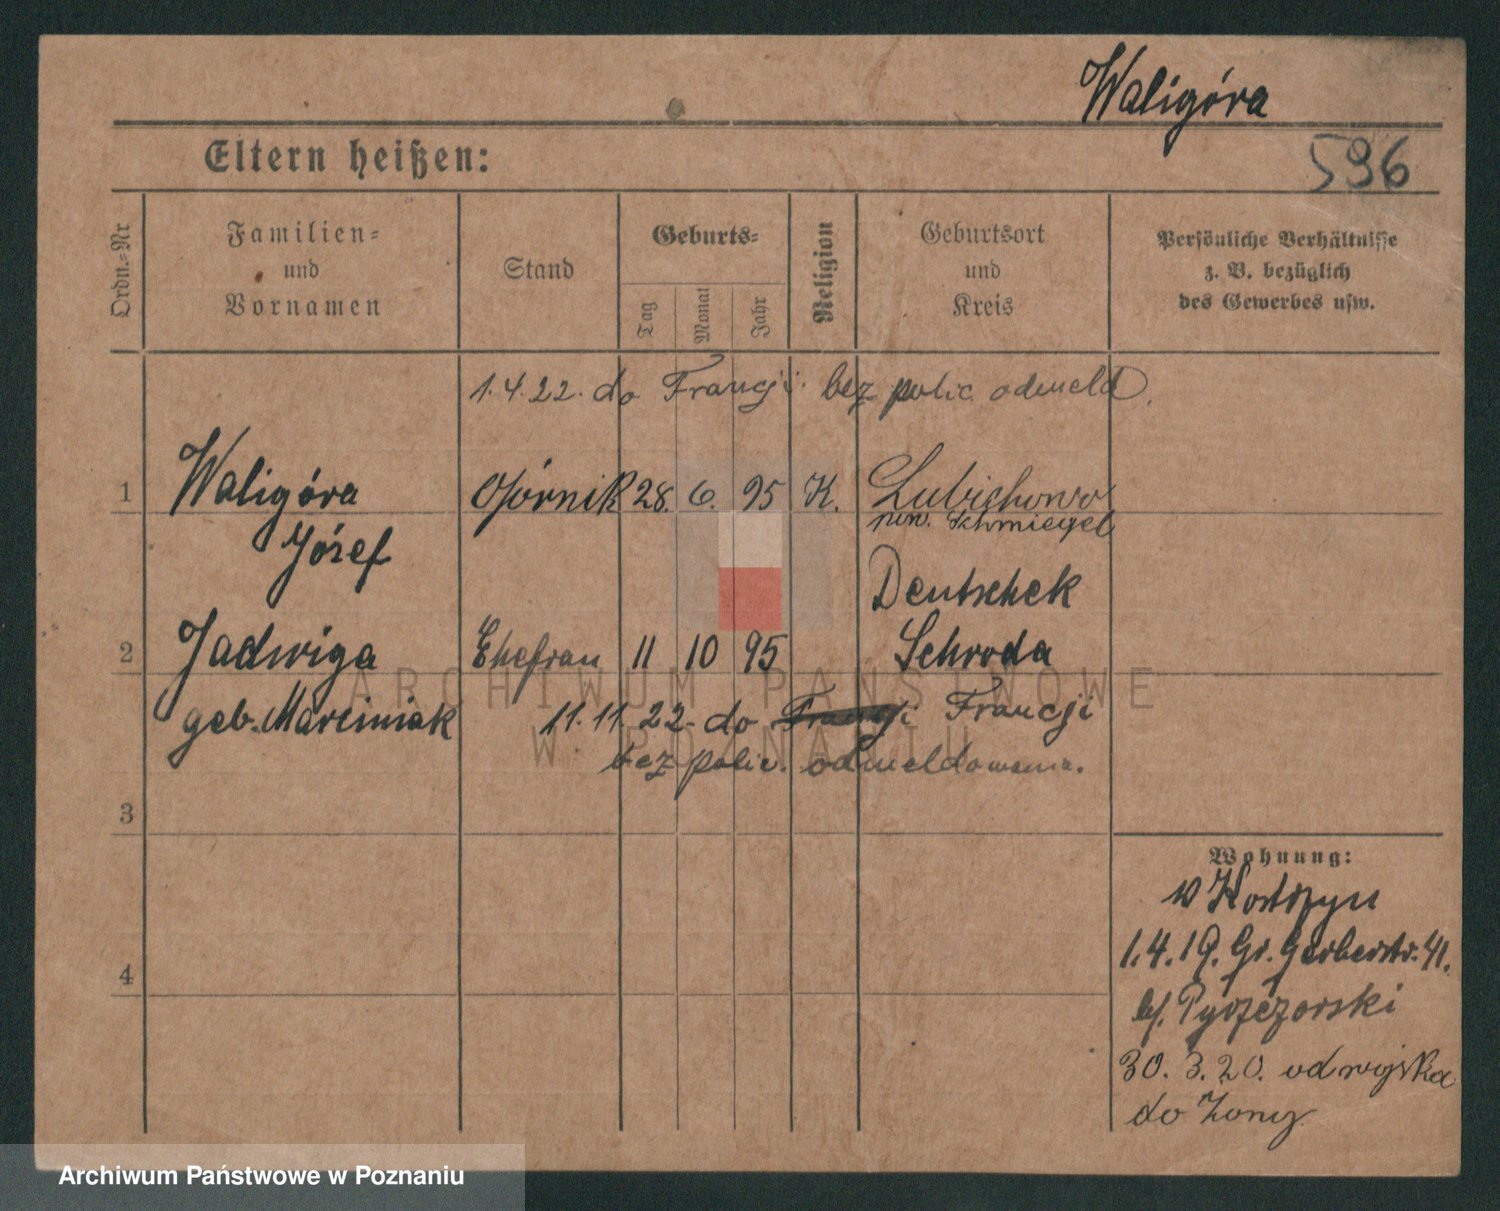 Waligóra
596
Eltern heißen:
Ordn.-Nr
Familien-
und
Vornamen
Stand
Geburts-
Tag
Monat
Jahr
Religion
Geburtsort
und
Kreis
Persönliche Verhältnisse
z. B. bezüglich
des Gewerbes usw.
1.4.22. do Francji bez polic. odmeld.
1 Waligóra Górnik 28. 6. 95 K. Lubichowo
pow. Schmiegel
Józef
Deutschek
2 Jadwiga Ehefrau 11 10 95 Schroda
geb. Marciniak 11.11.22 do Francji Francji
bez polic. odmeldowania.
3
4
Wohnung:
w Kostrzyn
1.4.19. Gr. Gerberstr. 41.
b/. Pyszczorski
30. 3. 20. od wojska
do żony
ARCHIWUM PAŃSTWOWE
W POZNANIU
Archiwum Państwowe w Poznaniu